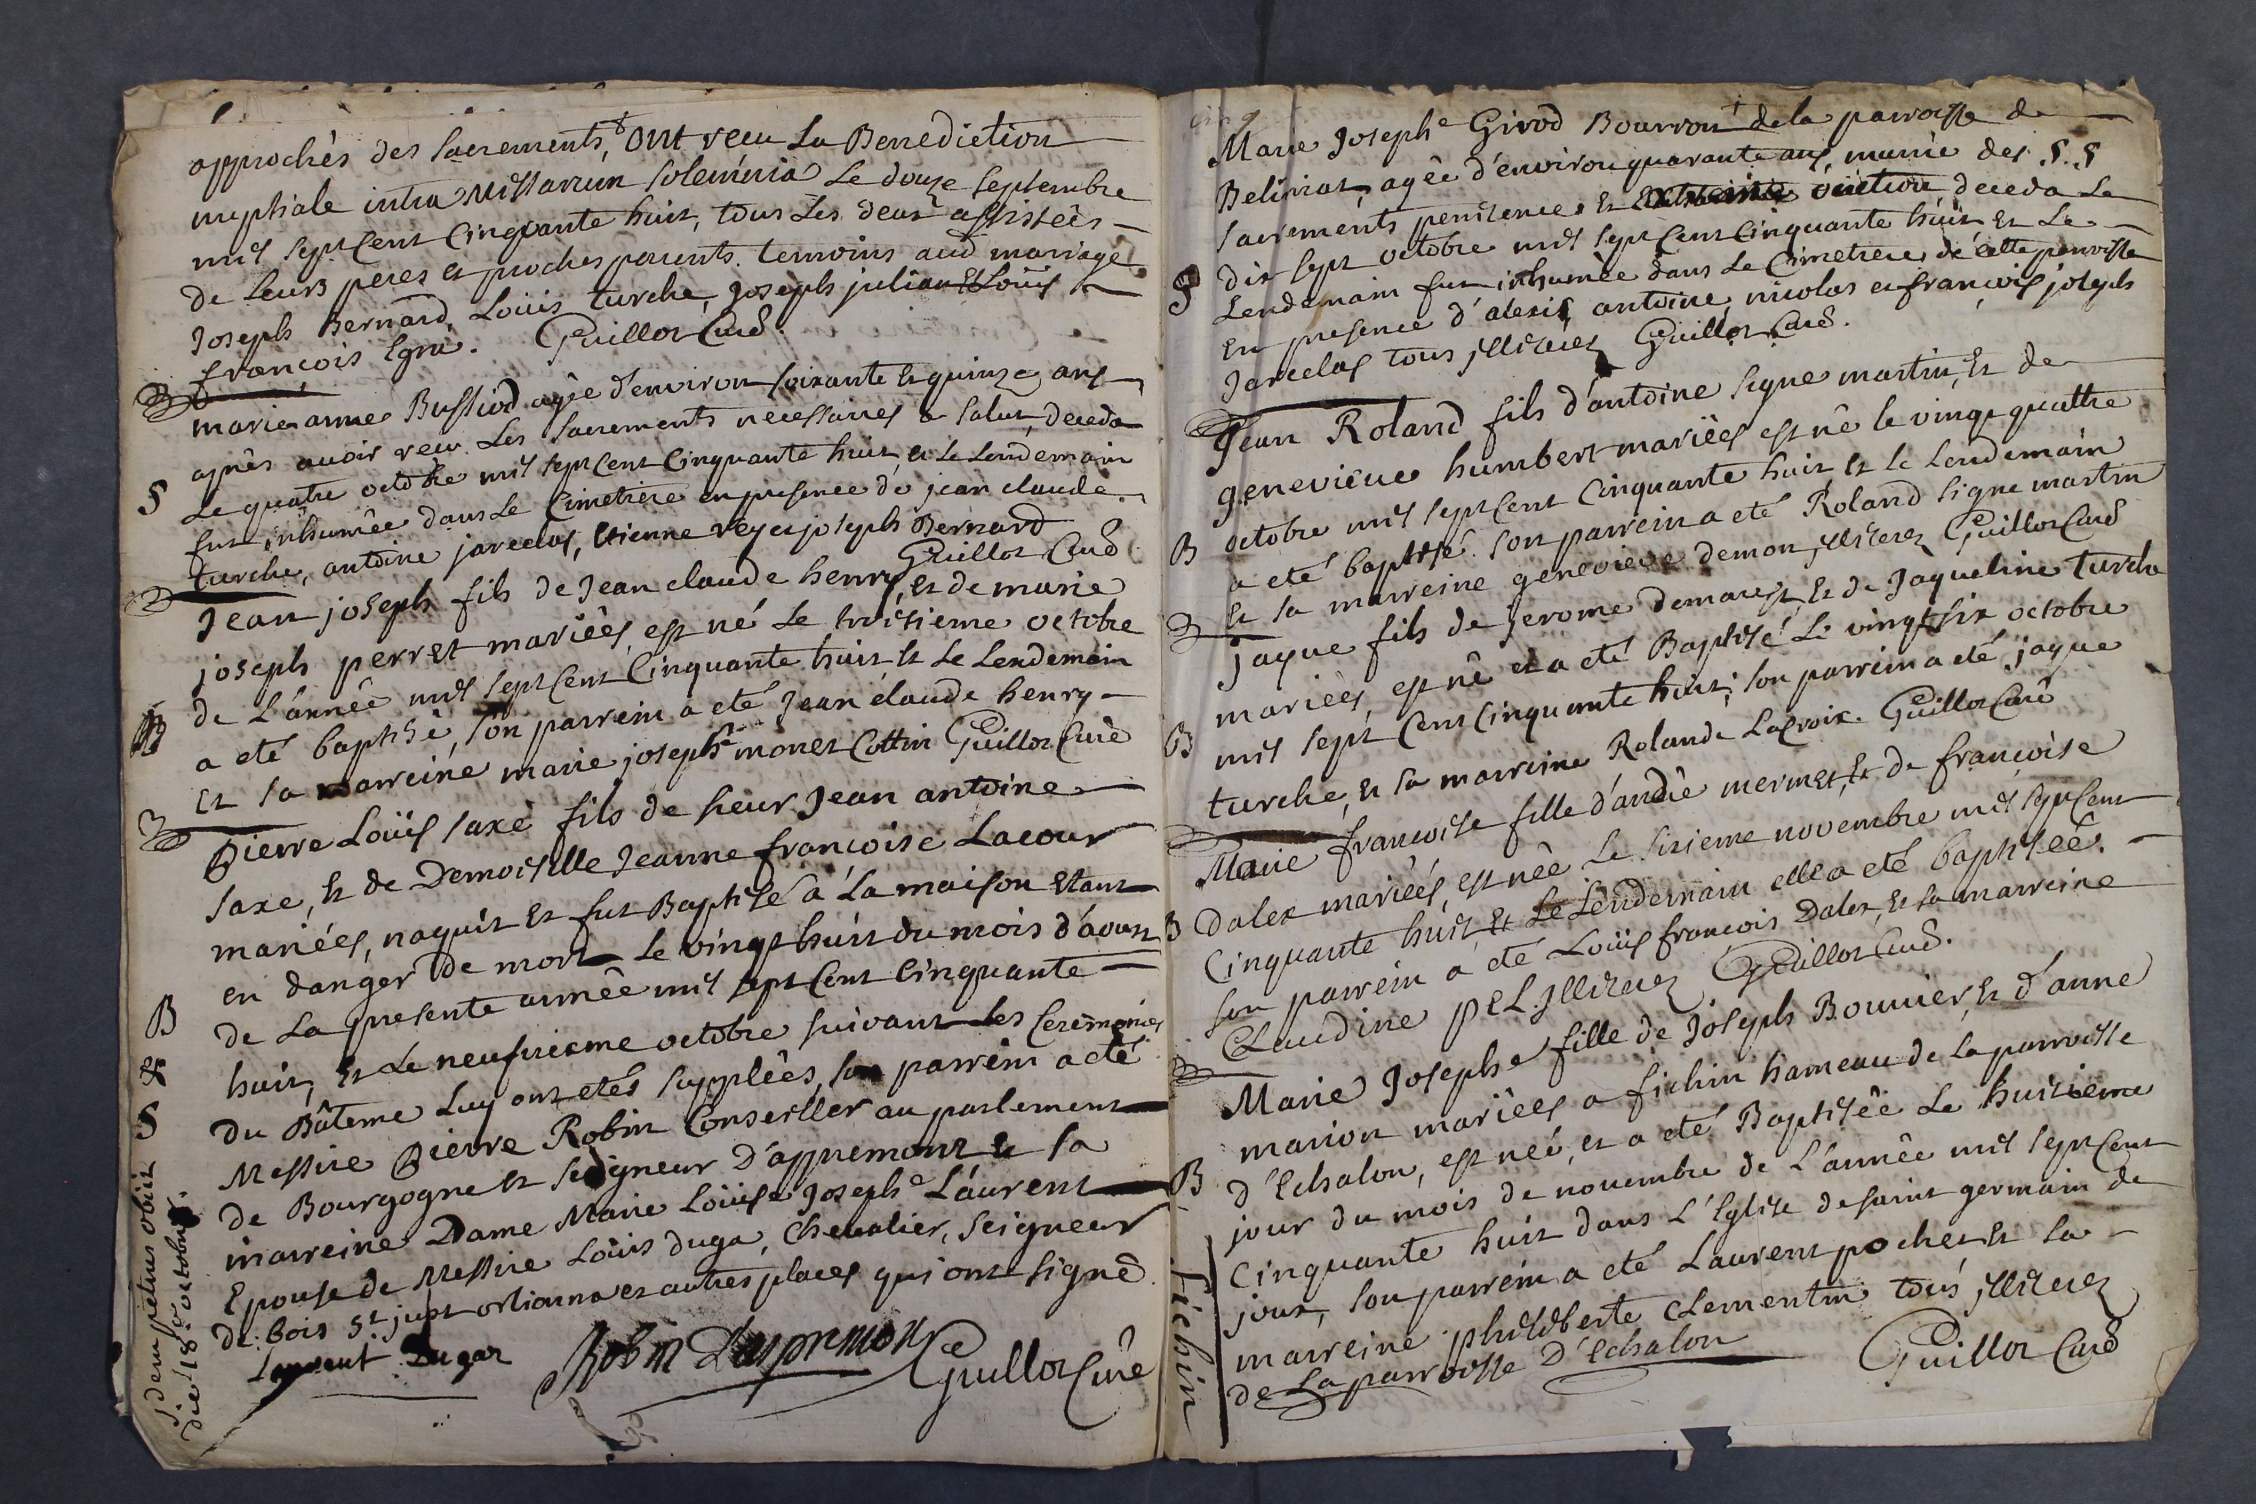 approchés des sacrements, ont recu La Benediction
nuptiale intra missarum solemnia Le douze septembre
mil sept Cent Cinquante huit, tous Les deux assistées
de Leurs peres et proches parents. temoins aud mariage
Joseph Bernard, Louis turche, Joseph julian et Loüis
françois Egra. Guillot Curé.
marie anne Bussiod agée d'environ soixante et quinze ans
après avoir recu Les sacrements necessaires a salut, deceda
S Le quatre octobre mil sept Cent Cinquante huit, et Le Lendemain
fut inhumée dans Le Cimetiere en presence de jean claude
turche, antoine jarcelas, Etienne rey et joseph Bernard
Guillot Curé
Jean joseph fils de Jean claude henry, et de marie
joseph perret mariées, est né Le troisieme octobre
B de L'année mil sept Cent Cinquante huit et Le Lendemain
a eté baptisé, son parrein a eté Jean claude henry
et sa marreine marie josephe monet Cottin Guillot Curé
Pierre Loüis saxe fils de sieur Jean antoine
saxe, et de Demoiselle Jeanne françoise Lacour
mariées, naquit et fut Baptisé a La maison etant
en danger de mort Le vingt huit du mois d'aoust
B de La presente année mil sept Cent Cinquante
huit, et Le neufvieme octobre suivant les Ceremonies
& du Bâteme Luy ont etés supplées, son parrein a eté
S Messire Pierre Robin Conseiller au parlement
de Bourgogne et seigneur D'appremont et sa
marreine Dame Marie Loüise Josephe Laurent
Epouse de Messire Loüis duga, Chevalier, seigneur
de bois St just orlienna et autres places qui ont signé.
Laurent Dugaz Robin Daspremont Guillot Curé
idem petrus obiit
die 18a octobris.
cinq
Marie Josephe Girod Bourron de la parroisse de
Belinat, agée d'environ quarante ans, munie des S.S
sacrements penitence et Extreme onction deceda Le
dix sept octobre mil sept Cent Cinquante huit et Le
S Lendemain fut inhumée dans Le Cimetiere de cette parroisse
En presence d'alexis, antoine, nicolas et françois joseph
Jarcelas tous illiterez Guillot Curé.
Jean Roland fils d'antoine signe martin, et de
genevieve humbert mariées est né le vingt quattre
octobre mil sept Cent Cinquante huit et le Lendemain
B a eté baptisé. son parrein a eté Roland signe martin
et sa marreine genevieve demon illiterez Guillot Curé
jaque fils de jerome demarest et de Jaqueline turche
mariées, est né et a eté Baptisé Le vingt six octobre
B mil sept Cent Cinquante huit; son parrein a eté jaque
turche, et sa marreine Rolande Lacroix. Guillot Curé
Marie françoise fille d'andré mermet, et de françoise
B Dalex mariées, est née Le sixieme novembre mil sept Cent
Cinquante huit, et Le Lendemain elle a eté baptisée.
son parrein a eté Loüis françois Dalex, et sa marreine
Claudine pel. illiterez Guillot Curé.
Marie Josephe fille de Joseph Bouvier, et d'anne
marion mariées a fichin hameau de La parroisse
B d'Echalon, est née, et a eté Baptisée Le huitieme
jour du mois de novembre de L'année mil sept Cent
Cinquante huit dans L'Eglise de saint germain de
joux, son parrein a eté Laurent pochet et sa
marreine philiberte Clementin tous illiterez
de La parroisse D'Echalon Guillot Curé
fichin